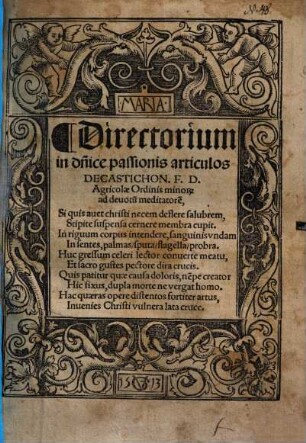 MARIA
¶Directorium
in dñice passionis articulos
DECASTICHON. F. D.
Agricolæ Ordinis minoꝝ
ad deuotũ meditatorẽ,
Si quis auet christi necem deflere salubrem,
Stipite suspensa cernere membra cupit.
In riguum corpus intendere, sanguinis vndam
In sentes, palmas/sputa/flagella/probra.
Huc gressum celeri lector conuerte meatu,
Et sacro gustes pectore dira crucis.
Quis patitur quæ causa doloris, nẽpe creator
Hic fixus, dupla morte ne vergat homo.
Hac quæras opere distentos fortiter artus,
Inuenies Christi vulnera lata cruce.
1513